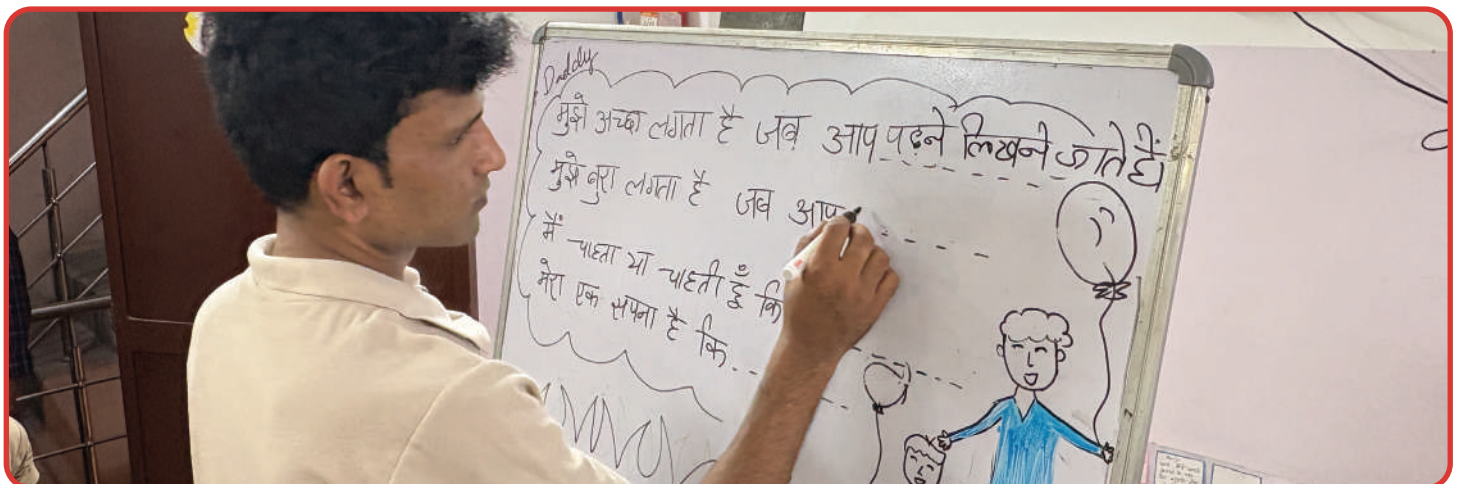 Daddy
मुझे अच्छा लगता है जब आप पढ़ने लिखने जाते हैं
मुझे बुरा लगता है जब आप - - - -
मैं चाहता या चाहती हूँ कि - - - -
मेरा एक सपना है कि.. - -